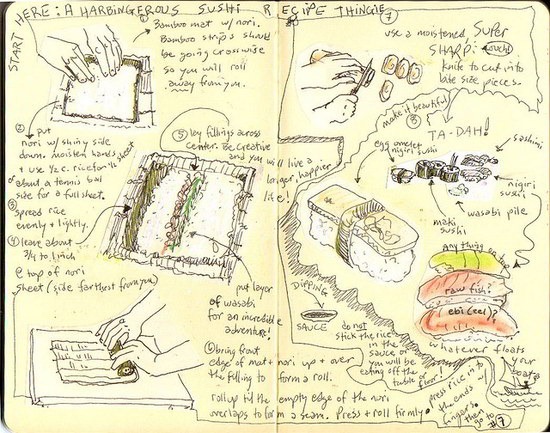 START HERE: A HARBINGEROUS SUSHI RECIPE THINGIE
① Bamboo mat w/ nori.
Bamboo strips should
be going crosswise
so you will roll
away from you.
② put
nori w/ shiny side
down. moisten hands
+ use ½ c. rice for ½ sheet
or about a tennis ball
size for a full sheet.
③ spread rice
evenly + lightly.
④ leave about
3/4 to 1 inch
@ top of nori
sheet (side farthest from you)
⑤ lay fillings across
center. Be creative
and you will live a
longer, happier
life!
put layer
of wasabi
for an incredible
adventure!
⑥ bring front
edge of mat + nori up + over
the filling to form a roll.
roll up til the empty edge of the nori
overlaps to form a seam. Press + roll firmly.
press rice into
the ends w/
fingers.
then
go to
#7
⑦
use a moistened, super
SHARP! (ouch!)
knife to cut into
bite size pieces.
make it beautiful
⑧
TA-DAH!
egg omelet
nigiri sushi
sashimi
nigiri
sushi
wasabi pile
maki
sushi
Anything on top
raw fish?
ebi (eel)?
whatever floats
your
boats
DIPPING
SAUCE
do not
stick the rice
in the sauce or
you will be
eating off the
table or floor!